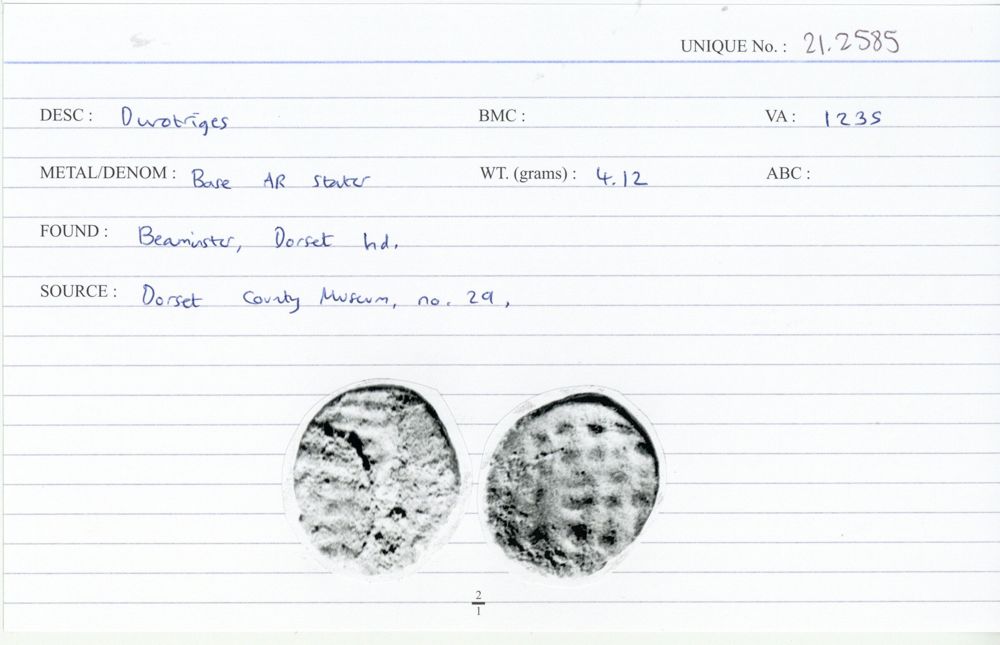 UNIQUE No. : 21.2585
DESC : Durotriges BMC : VA : 1235
METAL/DENOM : Base AR stater WT. (grams) : 4.12 ABC :
FOUND : Beaminster, Dorset hd.
SOURCE : Dorset County Museum, no. 29,
2
1